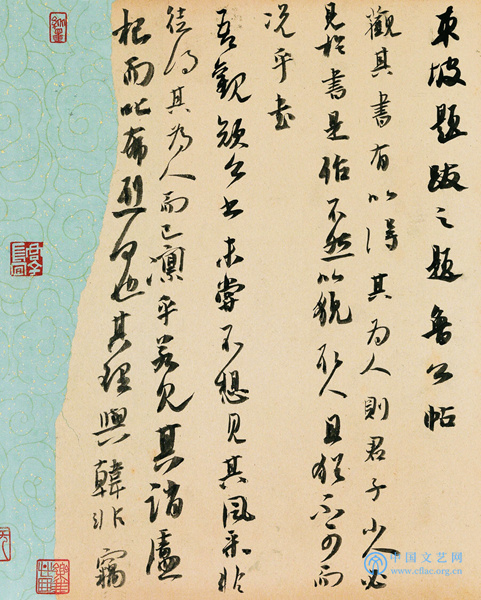 東坡題跋之題魯公帖
觀其書有以得其為人則君子小人必
見於書是殆不然以貌取人且猶不可而
况乎書
吾觀顏公書未嘗不想見其風采非
徒得其為人而已凛乎若見其誚盧
杞而叱希烈何也其理與韓非竊
中国文艺网
www.cflac.org.cn